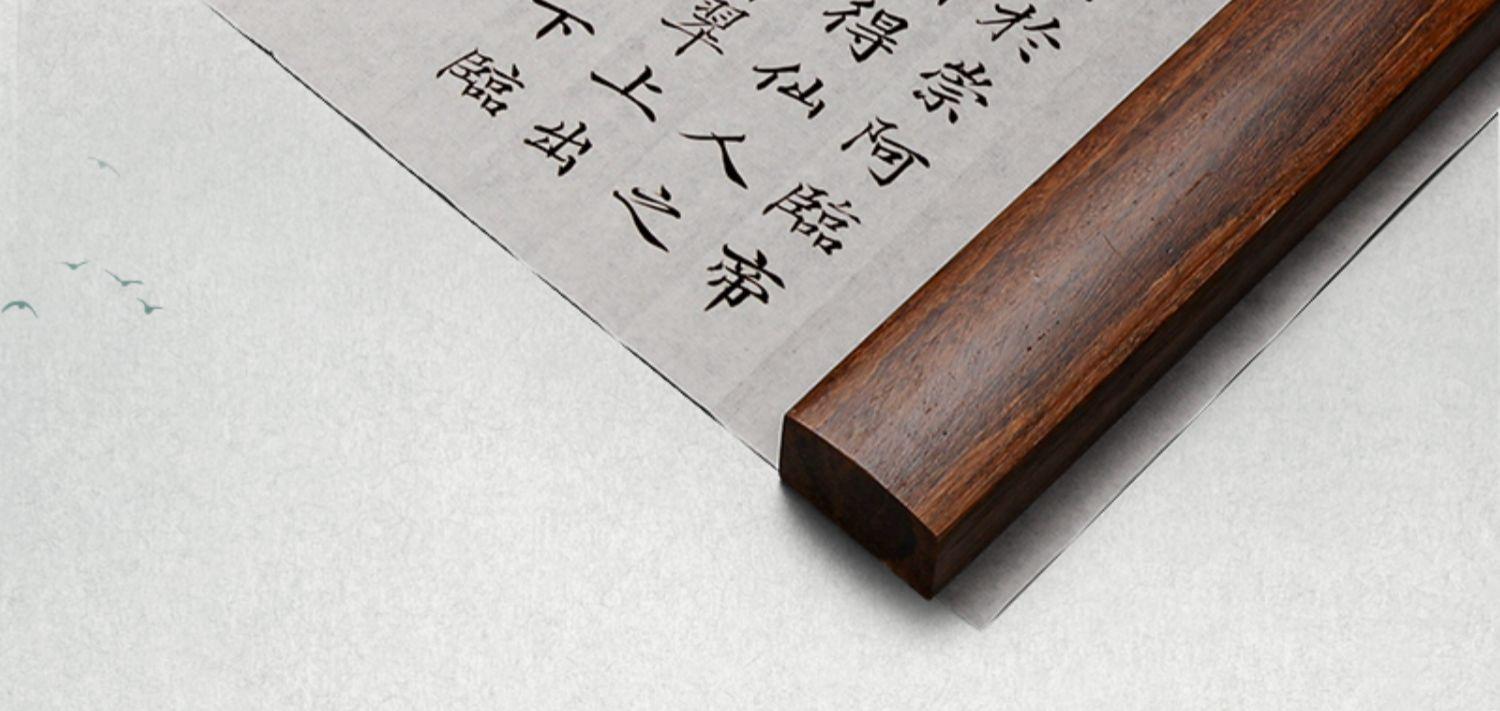 於崇阿臨帝
得仙人之
翠上出
下臨